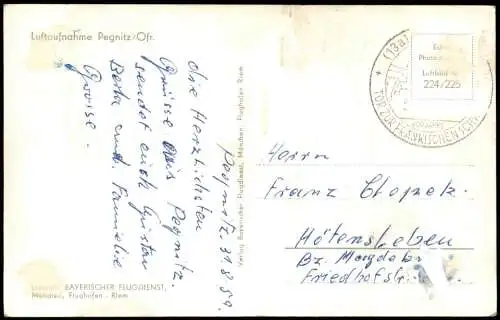 Luftaufnahme Pegnitz/Ofr.
Pegnitz, 31.8.59.
die Herzlichsten
Grüsse aus Pegnitz.
sendet euch Gustav
Berta und. Familie
Verlag Bayerischer Flugdienst, München, Flughafen Riem
BAYERISCHER FLUGDIENST,
München, Flughafen - Riem
(13a)
TOR ZUR FRÄNKISCHEN SCH
Echte
Photo
Luftbild Nr.
224/225
Herrn
Franz Chopek.
Hötensleben
Bz. Magdeb
Friedhofst